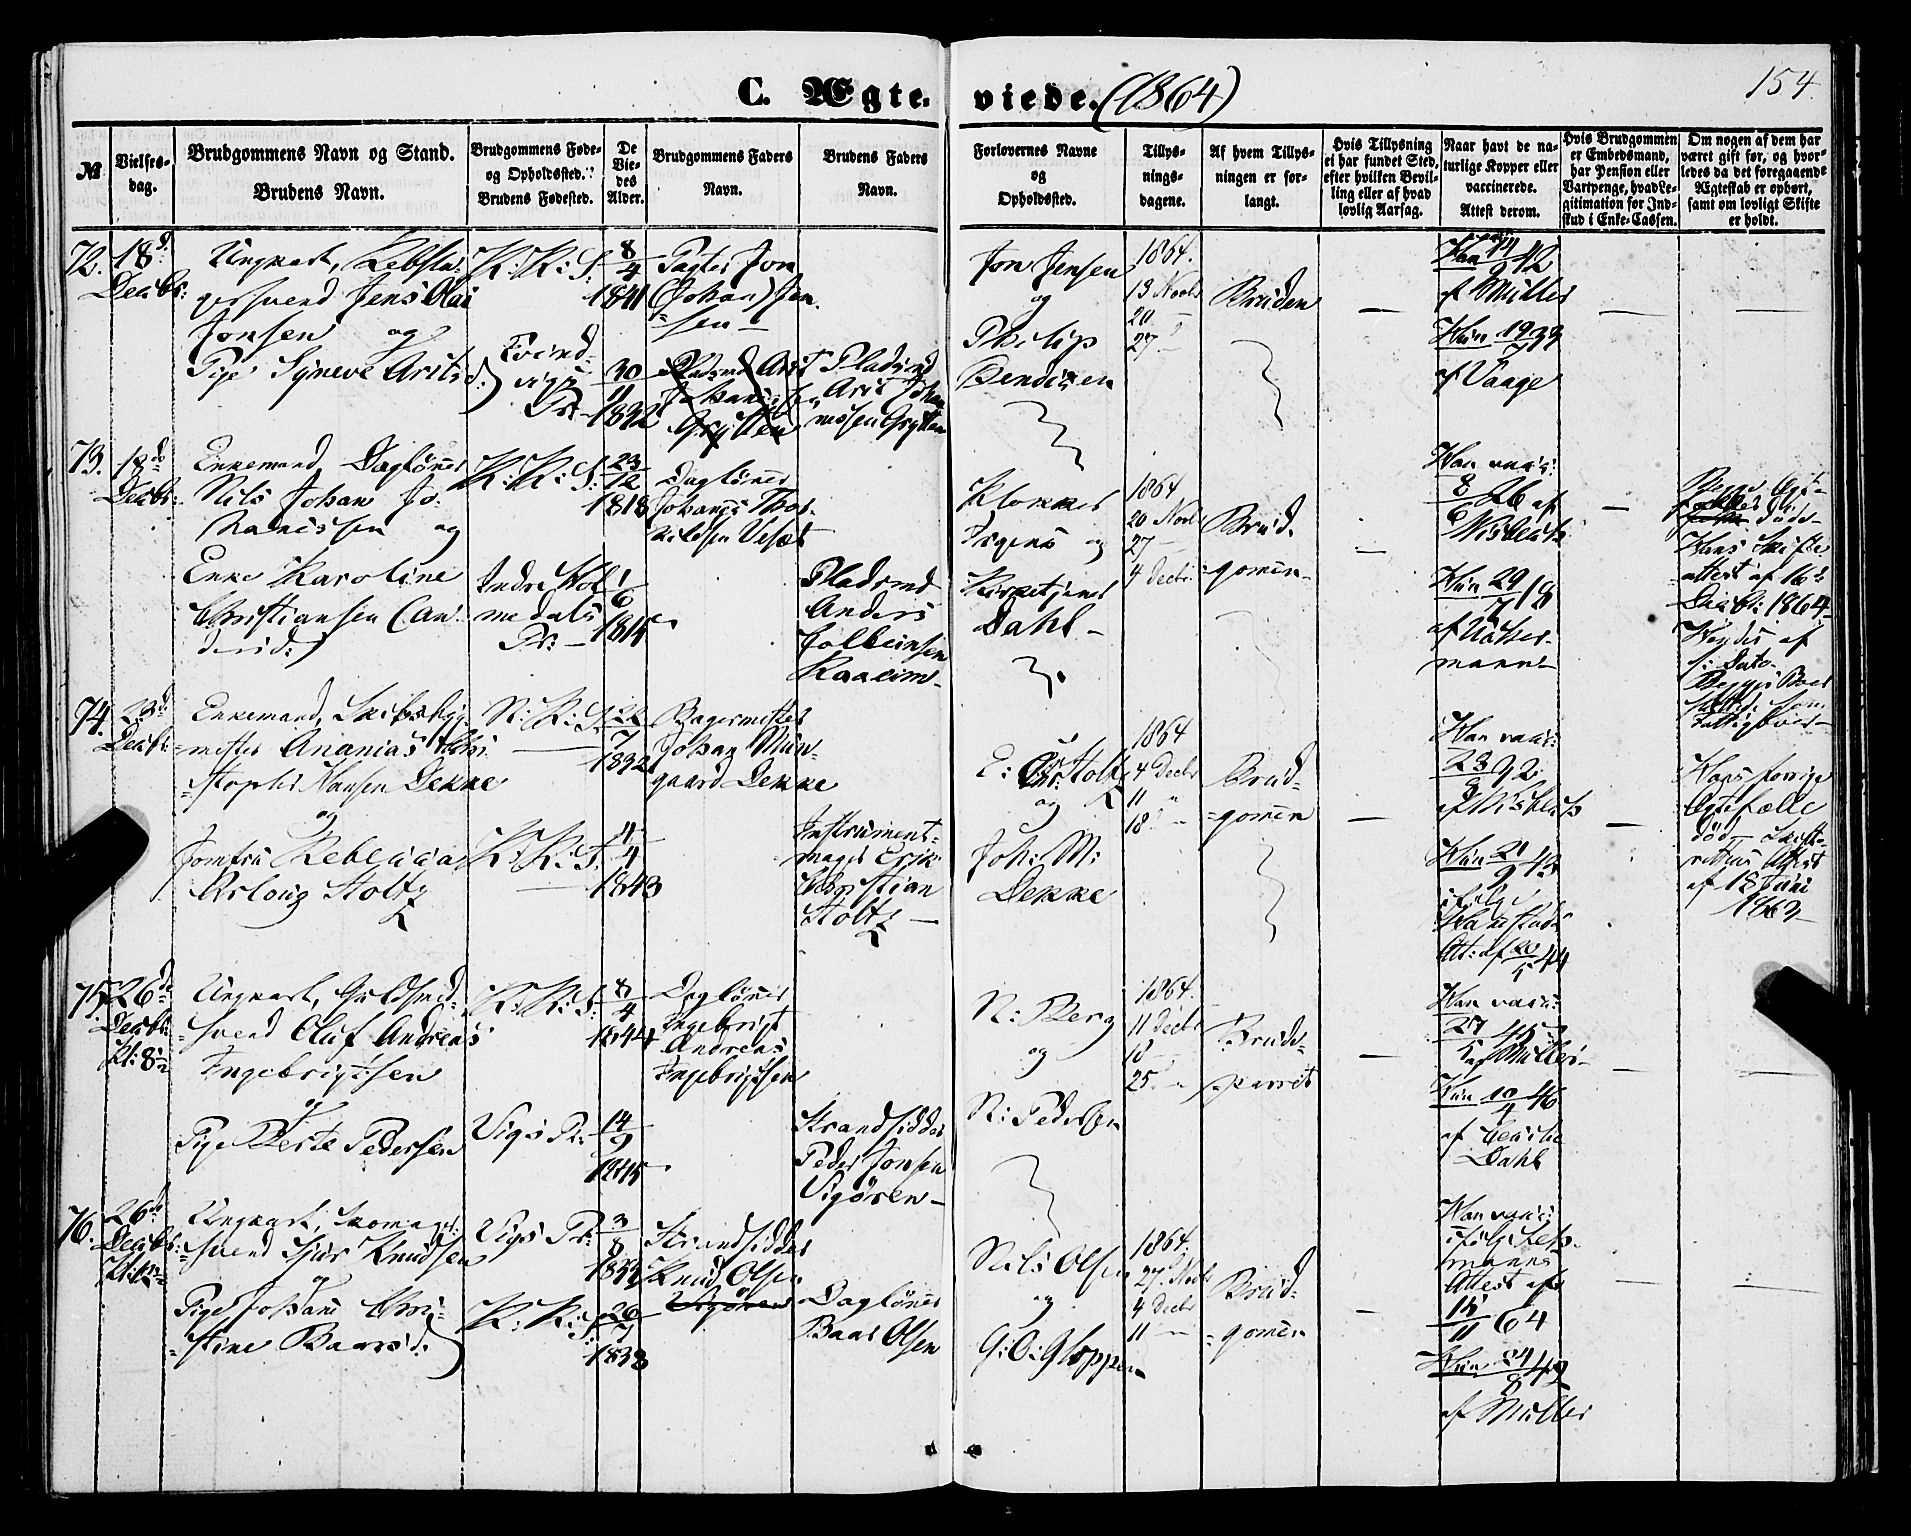 C. Ægte-
viede. (1864)
154.
№
Vielses-
dag.
Brudgommens Navn og Stand.
Brudens Navn.
Brudgommens Føde-
og Opholdssted.
Brudens Fødested.
De
Vie-
des
Alder.
Brudgommens Faders
Navn.
Brudens Faders
Navn.
Forlovernes Navne
og
Opholdssted.
Tillys-
nings-
dagene.
Af hvem Tillys-
ningen er for-
langt.
Hvis Tillysning
ei har fundet Sted,
efter hvilken Bevil-
ling eller af hvad
lovlig Aarsag.
Naar havt de na-
turlige Kopper eller
vaccinerede.
Attest derom.
Hvis Brudgommen
er Embedsmand,
har Pension eller
Vartpenge, hvad Le-
gitimation for Ind-
skud i Enke-Cassen.
Om nogen af dem har
været gift før, og hvor-
ledes da det foregaaende
Ægteskab er ophørt,
samt om lovligt Skifte
er holdt.
72.
18d
Decbr:
Ungkarl, Rebsla-
gersvend Jens Olai
Jonsen og
Pige Synneve Arisd.
K: K: S:
Evind-
vigs
Pr:
8/4
1841
30/11
1832
Pagter Jon
(Johan) Jen-
sen
Pladsmd Aris
Johannessen
Grytten
Pladsmd
Aris Johan-
nessen Grytten
Jon Jensen
og
Philip
Bendixen
1864.
13 Novbr
20 —
27 —
Bruden
—
af Müller
af Vaage
—
—
73.
18de
Decbr:
Enkemand, Daglönner
Nils Johan Jo-
hannessen og
Enke Karoline
Christiansen (An-
dersd:)
K: K: S:
Indre Hol-
medals
Pr: —
23/12
1818
1/6
1815
Daglönner
Johannes Thor-
kildsen
Pladsmd
Anders
Kaarem-
Klokker
og
Kirketjener
Dahl —
1864
20 Novbr
27 —
4 Decbr.
Brud-
gommen
—
Han vacc:
8/6 26 af
Wisbech
Hun 29/7 18
—
Hans Skifte-
attest af 16d
Decbr: 1864
74.
23d
Decbr:
Enkemand, Skibsbyg-
mester Ananias Chri-
stopher Hansen Dekke
og
Jomfru Rebecca
Aslaug Stoltz
K: K: S:
—
K: K: S:
—
22/7
1832
4/4
1843
Bagermester
Johan Mün-
gaard Dekke
Instrument-
mager Erik
Christian
Stoltz —
E: Chr: Stoltz
og
Joh: M:
Dekke
1864
4 Decbr
11 "
18 —
Brud-
gommen
—
Han vacc:
af Wisbech
ifølge
Att: af 20/5 44
—
Hans forrige
Egtefælle
død — Skifte-
rettens Attest
af 18 Juni
1863
75.
26de
Decbr:
Kl: 8½
Ungkarl, Guldsmed-
svend Oluf Andreas
Ingebrigtsen
og
Pige Berte Pedersen
K: K: S:
Vigs Pr:
8/4
1844
14/9
1845
Daglönner
Ingebrigt
Andreas
Ingebrigtsen
Strandsidder
Peder Jonsen
Vigören —
N: Berg
og
N: Pedersen
1864.
11 Decbr
18 —
25 —
Brude-
parret
—
Han vacc:
27/5 45
af Müller
Hun 10/4 46
af Cecilie
Dahl
—
—
76.
26de
Decbr:
Ungkarl, Skomager-
svend Sjur Knudsen
og
Pige Johanne Chri-
stine Baarsd.
Vigs Pr:
K: K: S:
3/8
26/7
1838
Strandsidder
Knud Olsen
Vigören
Daglönner
Baar Olsen
Nils Olsen
og
G: O: Gloppen
1864.
27 Novbr
4 Decbr
11 —
Brud-
gommen
—
Han vacc:
ifölge Lehn-
manns
Attest af
15/11 64
Hun 24/8 42
af Müller
—
—